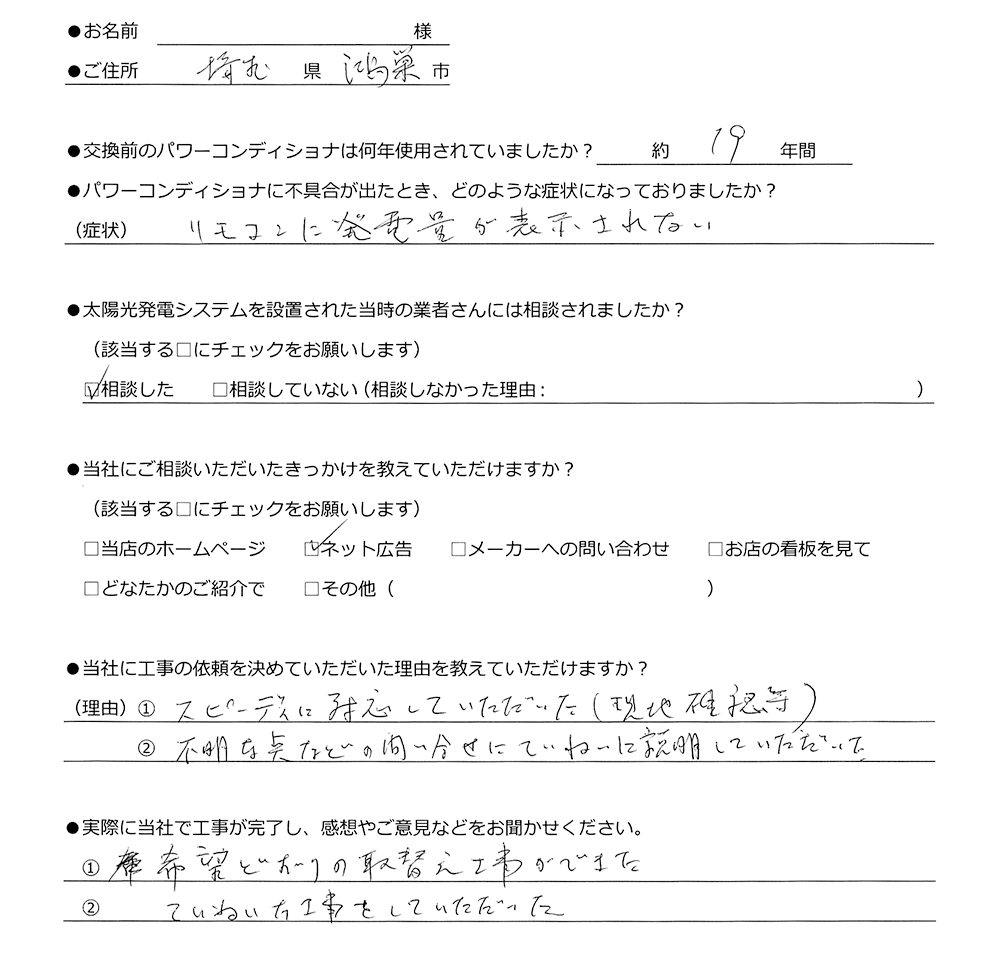 ●お名前 様
●ご住所 埼玉 県 鴻巣 市
●交換前のパワーコンディショナは何年使用されていましたか? 約 19 年間
●パワーコンディショナに不具合が出たとき、どのような症状になっておりましたか?
(症状) リモコンに発電量が表示されない
●太陽光発電システムを設置された当時の業者さんには相談されましたか?
(該当する□にチェックをお願いします)
☑相談した □相談していない(相談しなかった理由: )
●当社にご相談いただいたきっかけを教えていただけますか?
(該当する□にチェックをお願いします)
□当店のホームページ ☑ネット広告 □メーカーへの問い合わせ □お店の看板を見て
□どなたかのご紹介で □その他( )
●当社に工事の依頼を決めていただいた理由を教えていただけますか?
(理由)① スピーディに対応していただいた(現地確認等)
② 不明な点などの問い合せにていねいに説明していただいた
●実際に当社で工事が完了し、感想やご意見などをお聞かせください。
① 希望どおりの取替え工事ができた
② ていねいな工事をしていただいた